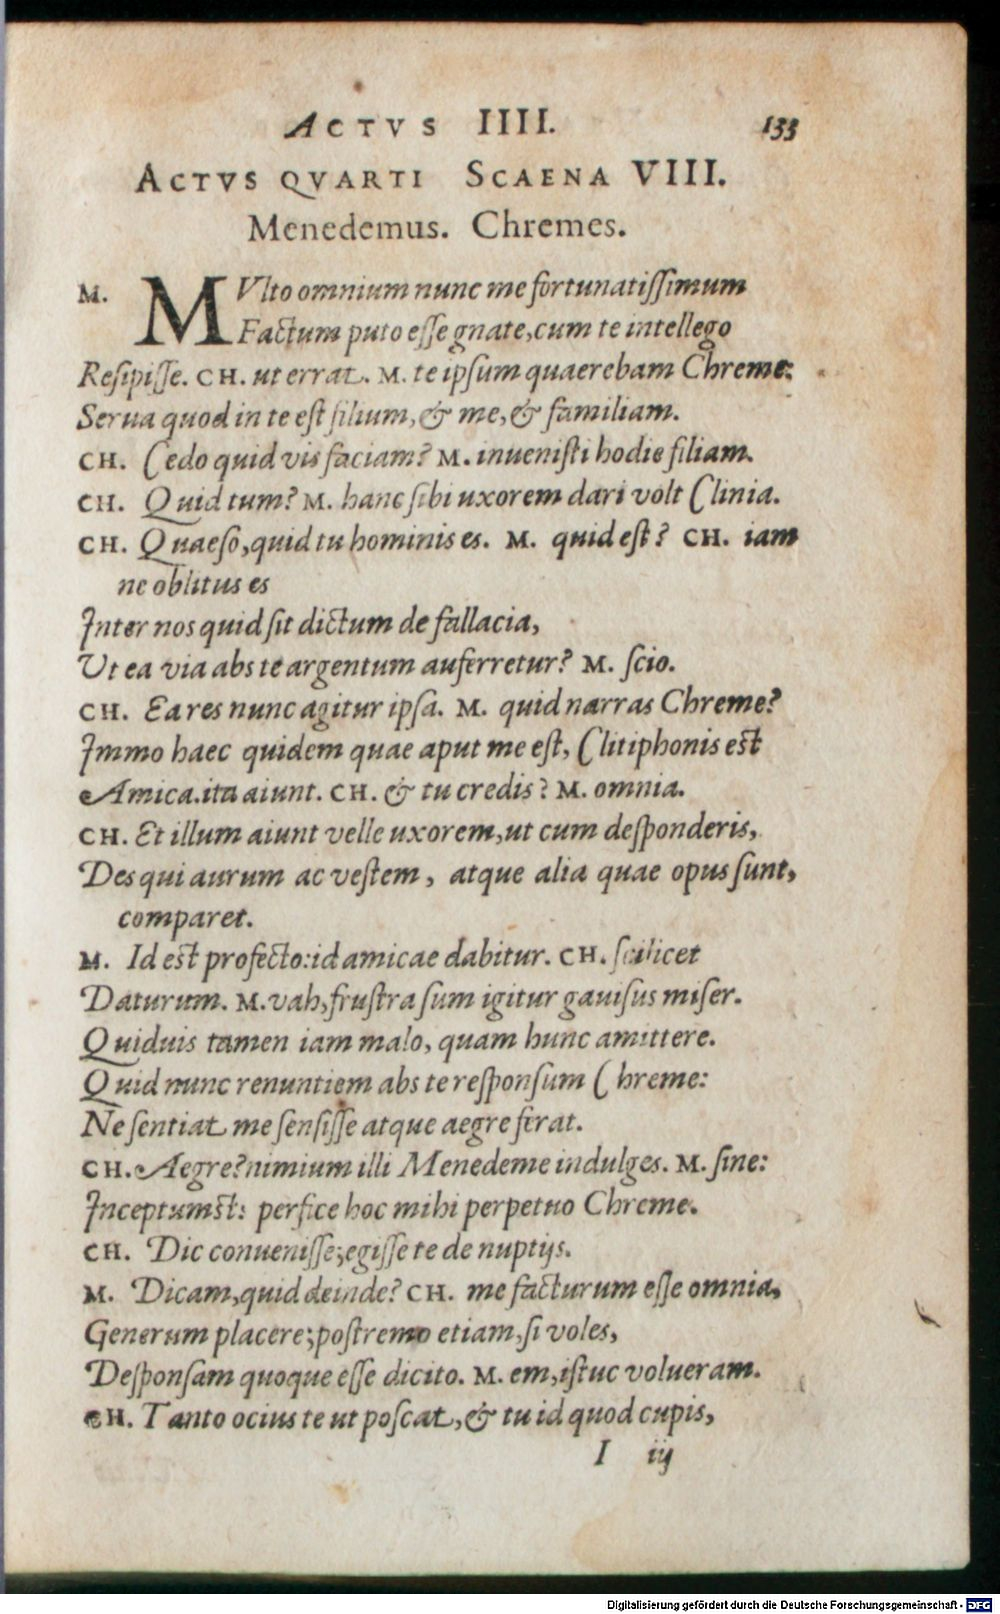 ACTVS IIII. 133
ACTVS QVARTI SCAENA VIII.
Menedemus. Chremes.
M. MVlto omnium nunc me fortunatissimum
Factum puto esse gnate, cum te intellego
Resipisse. CH. ut errat. M. te ipsum quaerebam Chreme:
Serua quod in te est filium, & me, & familiam.
CH. Cedo quid vis faciam? M. inuenisti hodie filiam.
CH. Quid tum? M. hanc sibi uxorem dari volt Clinia.
CH. Quaeso, quid tu hominis es. M. quid est? CH. iam
ne oblitus es
Inter nos quid sit dictum de fallacia,
Ut ea via abs te argentum auferretur? M. scio.
CH. Ea res nunc agitur ipsa. M. quid narras Chreme?
Immo haec quidem quae aput me est, Clitiphonis est
Amica. ita aiunt. CH. & tu credis? M. omnia.
CH. Et illum aiunt velle uxorem, ut cum desponderis,
Des qui aurum ac vestem, atque alia quae opus sunt,
comparet.
M. Id est profecto: id amicae dabitur. CH. scilicet
Daturum. M. vah, frustra sum igitur gauisus miser.
Quiduis tamen iam malo, quam hunc amittere.
Quid nunc renuntiem abs te responsum Chreme:
Ne sentiat me sensisse atque aegre ferat.
CH. Aegre? nimium illi Menedeme indulges. M. sine:
Inceptumst: perfice hoc mihi perpetuo Chreme.
CH. Dic conuenisse; egisse te de nuptijs.
M. Dicam, quid deinde? CH. me facturum esse omnia,
Generum placere; postremo etiam, si voles,
Desponsam quoque esse dicito. M. em, istuc volueram.
CH. Tanto ocius te ut poscat, & tu id quod cupis,
I iij
Digitalisierung gefördert durch die Deutsche Forschungsgemeinschaft - DFG